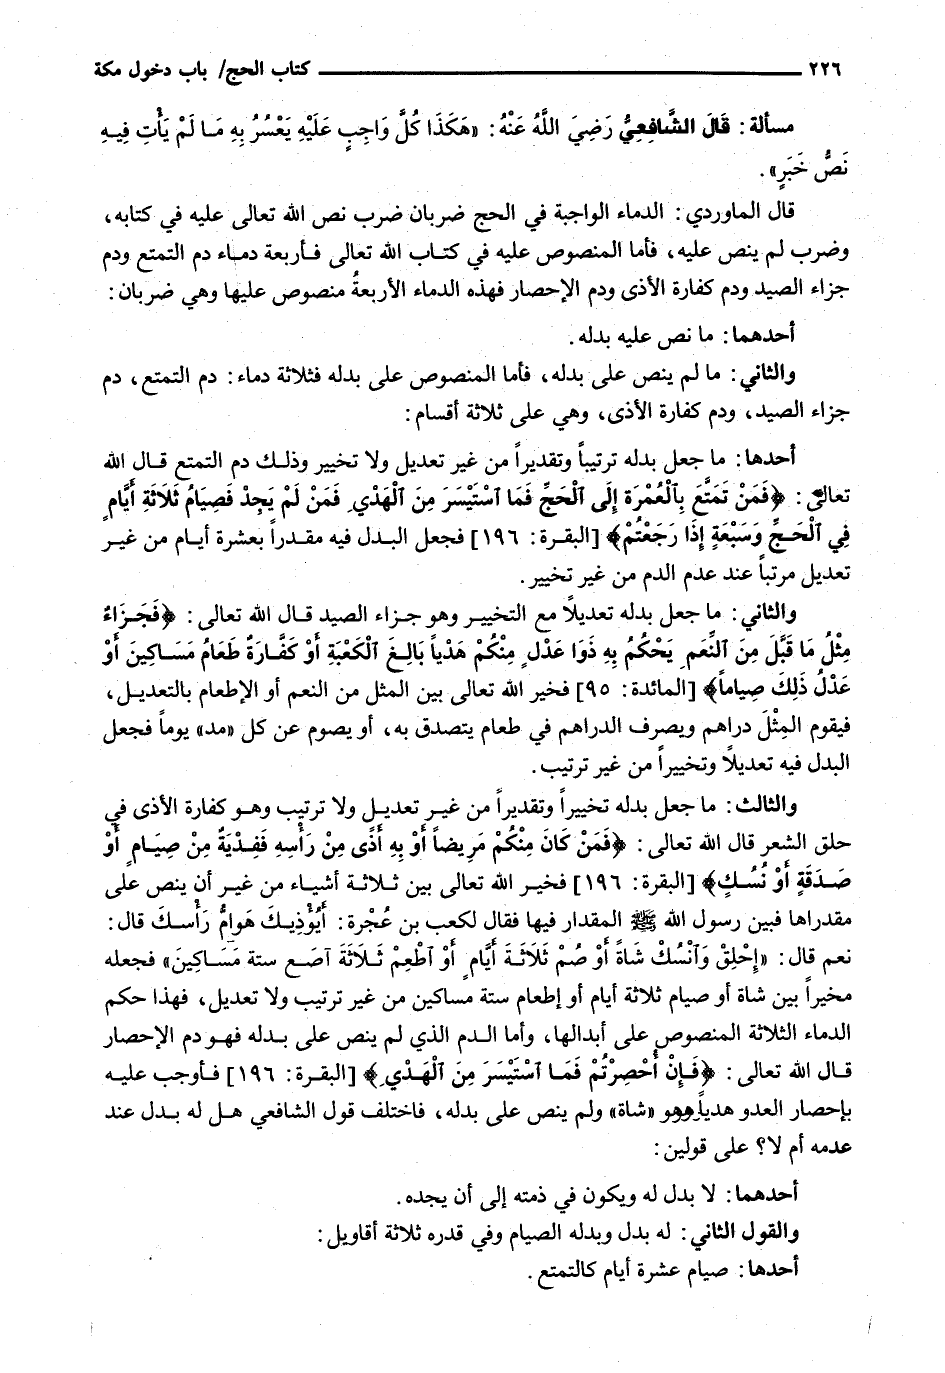 ٢٢٦ كتاب الحج/ باب دخول مكة
مسألة: قَالَ الشَّافِعِيُّ رَضِيَ اللَّهُ عَنْهُ: «هَكَذَا كُلُّ وَاجِبٍ عَلَيْهِ يَعْسُرُ بِهِ مَا لَمْ يَأْتِ فِيهِ
نَصُّ خَبَرٍ».
قال الماوردي: الدماء الواجبة في الحج ضربان ضرب نص الله تعالى عليه في كتابه،
وضرب لم ينص عليه، فأما المنصوص عليه في كتاب الله تعالى فأربعة دماء دم التمتع ودم
جزاء الصيد ودم كفارة الأذى ودم الإحصار فهذه الدماء الأربعةُ منصوص عليها وهي ضربان:
أحدهما: ما نص عليه بدله.
والثاني: ما لم ينص على بدله، فأما المنصوص على بدله فثلاثة دماء: دم التمتع، دم
جزاء الصيد، ودم كفارة الأذى، وهي على ثلاثة أقسام:
أحدها: ما جعل بدله ترتيباً وتقديراً من غير تعديل ولا تخيير وذلك دم التمتع قال الله
تعالى: ﴿فَمَنْ تَمَتَّعَ بِٱلْعُمْرَةِ إِلَى ٱلْحَجِّ فَمَا ٱسْتَيْسَرَ مِنَ ٱلْهَدْيِ فَمَنْ لَمْ يَجِدْ فَصِيَامُ ثَلَاثَةِ أَيَّامٍ
فِي ٱلْحَجِّ وَسَبْعَةٍ إِذَا رَجَعْتُمْ﴾ [البقرة: ١٩٦] فجعل البدل فيه مقدراً بعشرة أيام من غير
تعديل مرتباً عند عدم الدم من غير تخيير.
والثاني: ما جعل بدله تعديلاً مع التخيير وهو جزاء الصيد قال الله تعالى: ﴿فَجَزَاءٌ
مِثْلُ مَا قَتَلَ مِنَ ٱلنَّعَمِ يَحْكُمُ بِهِ ذَوَا عَدْلٍ مِنْكُمْ هَدْياً بَالِغَ ٱلْكَعْبَةِ أَوْ كَفَّارَةٌ طَعَامُ مَسَاكِينَ أَوْ
عَدْلُ ذَلِكَ صِيَاماً﴾ [المائدة: ٩٥] فخير الله تعالى بين المثل من النعم أو الإطعام بالتعديل،
فيقوم المِثْلَ دراهم ويصرف الدراهم في طعام يتصدق به، أو يصوم عن كل «مد» يوماً فجعل
البدل فيه تعديلاً وتخييراً من غير ترتيب.
والثالث: ما جعل بدله تخييراً وتقديراً من غير تعديل ولا ترتيب وهو كفارة الأذى في
حلق الشعر قال الله تعالى: ﴿فَمَنْ كَانَ مِنْكُمْ مَرِيضاً أَوْ بِهِ أَذًى مِنْ رَأْسِهِ فَفِدْيَةٌ مِنْ صِيَامٍ أَوْ
صَدَقَةٍ أَوْ نُسُكٍ﴾ [البقرة: ١٩٦] فخير الله تعالى بين ثلاثة أشياء من غير أن ينص على
مقدراها فبين رسول الله ﷺ المقدار فيها فقال لكعب بن عُجْرة: أَيُؤْذِيكَ هَوَامُّ رَأْسكَ قال:
نعم قال: «إِحْلِقْ وَٱنْسُكْ شَاةً أَوْ صُمْ ثَلَاثَةَ أَيَّامٍ أَوْ ٱطْعِمْ ثَلَاثَةَ آصَعٍ ستة مَسَاكِينَ» فجعله
مخيراً بين شاة أو صيام ثلاثة أيام أو إطعام ستة مساكين من غير ترتيب ولا تعديل، فهذا حكم
الدماء الثلاثة المنصوص على أبدالها، وأما الدم الذي لم ينص على بدله فهو دم الإحصار
قال الله تعالى: ﴿فَإِنْ أُحْصِرْتُمْ فَمَا ٱسْتَيْسَرَ مِنَ ٱلْهَدْيِ﴾ [البقرة: ١٩٦] فأوجب عليه
بإحصار العدو هدياً وهو «شاة» ولم ينص على بدله، فاختلف قول الشافعي هل له بدل عند
عدمه أم لا؟ على قولين:
أحدهما: لا بدل له ويكون في ذمته إلى أن يجده.
والقول الثاني: له بدل وبدله الصيام وفي قدره ثلاثة أقاويل:
أحدها: صيام عشرة أيام كالتمتع.